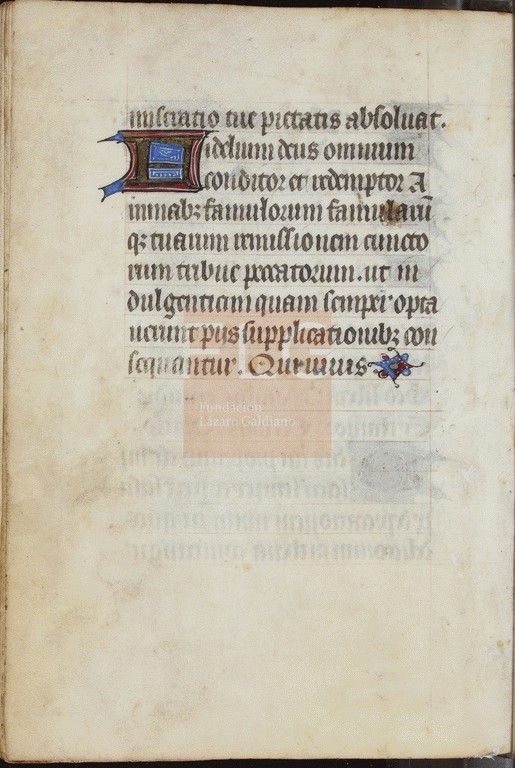 miseratio tue pietatis absoluat.
Fidelium deus omnium
conditor et redemptor A
nimabꝫ famulorum famularū
qꝫ tuarum remissionem cuncto
rum tribue peccatorum. ut in
dulgentiam quam semper opta
uerunt piis supplicationibꝫ con
sequantur. Qui uiuis
Fundación
Lázaro Galdiano